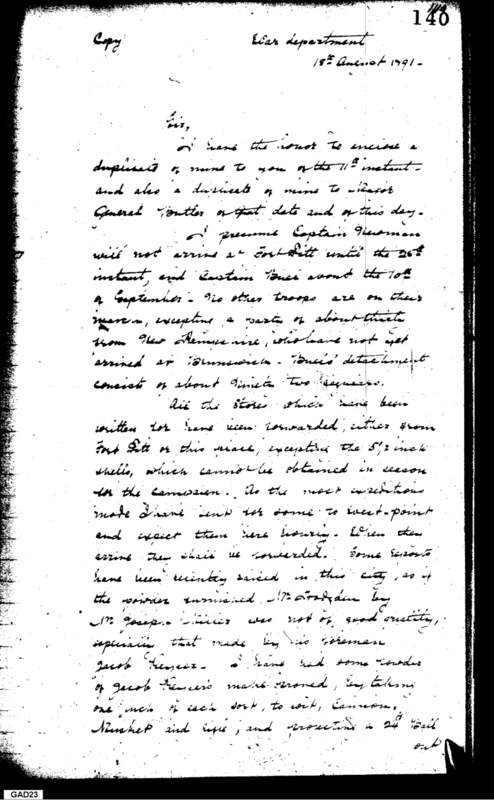 140
Copy War department
18th August 1791-
Sir,
I have the honor to enclose a
duplicate of mine to you of the 11th instant-
and also a duplicate of mine to Major
General Butler of that date and of this day-
I presume Captain Newman
will not arrive at Fort Pitt until the 26th
instant, and Captain Buel about the 10th
of September- No other troops are on their
march, excepting a party of about thirty
from New Hampshire, who have not yet
arrived at Brunswick- Buel's detachment
consists of about Ninety two
All the Stores which have been
written for have been forwarded, either from
Fort Pitt or this place, excepting the 5½ inch
shells, which cannot be obtained in season
for the campaign. As the most expeditious
mode I have sent for some to West-point
and expect them here hourly- When they
arrive they shall be forwarded. Some reports
have been recently raised in this city, as if
the powder furnished Mr by
Mr Joseph Miller was not of good quality,
especially that made by his foreman
Jacob - I have had some powder
of Jacob make proved, by taking
one inch of each sort, to wit, Cannon,
Musket and rifle, and projecting a 24th Ball
out
GAD23